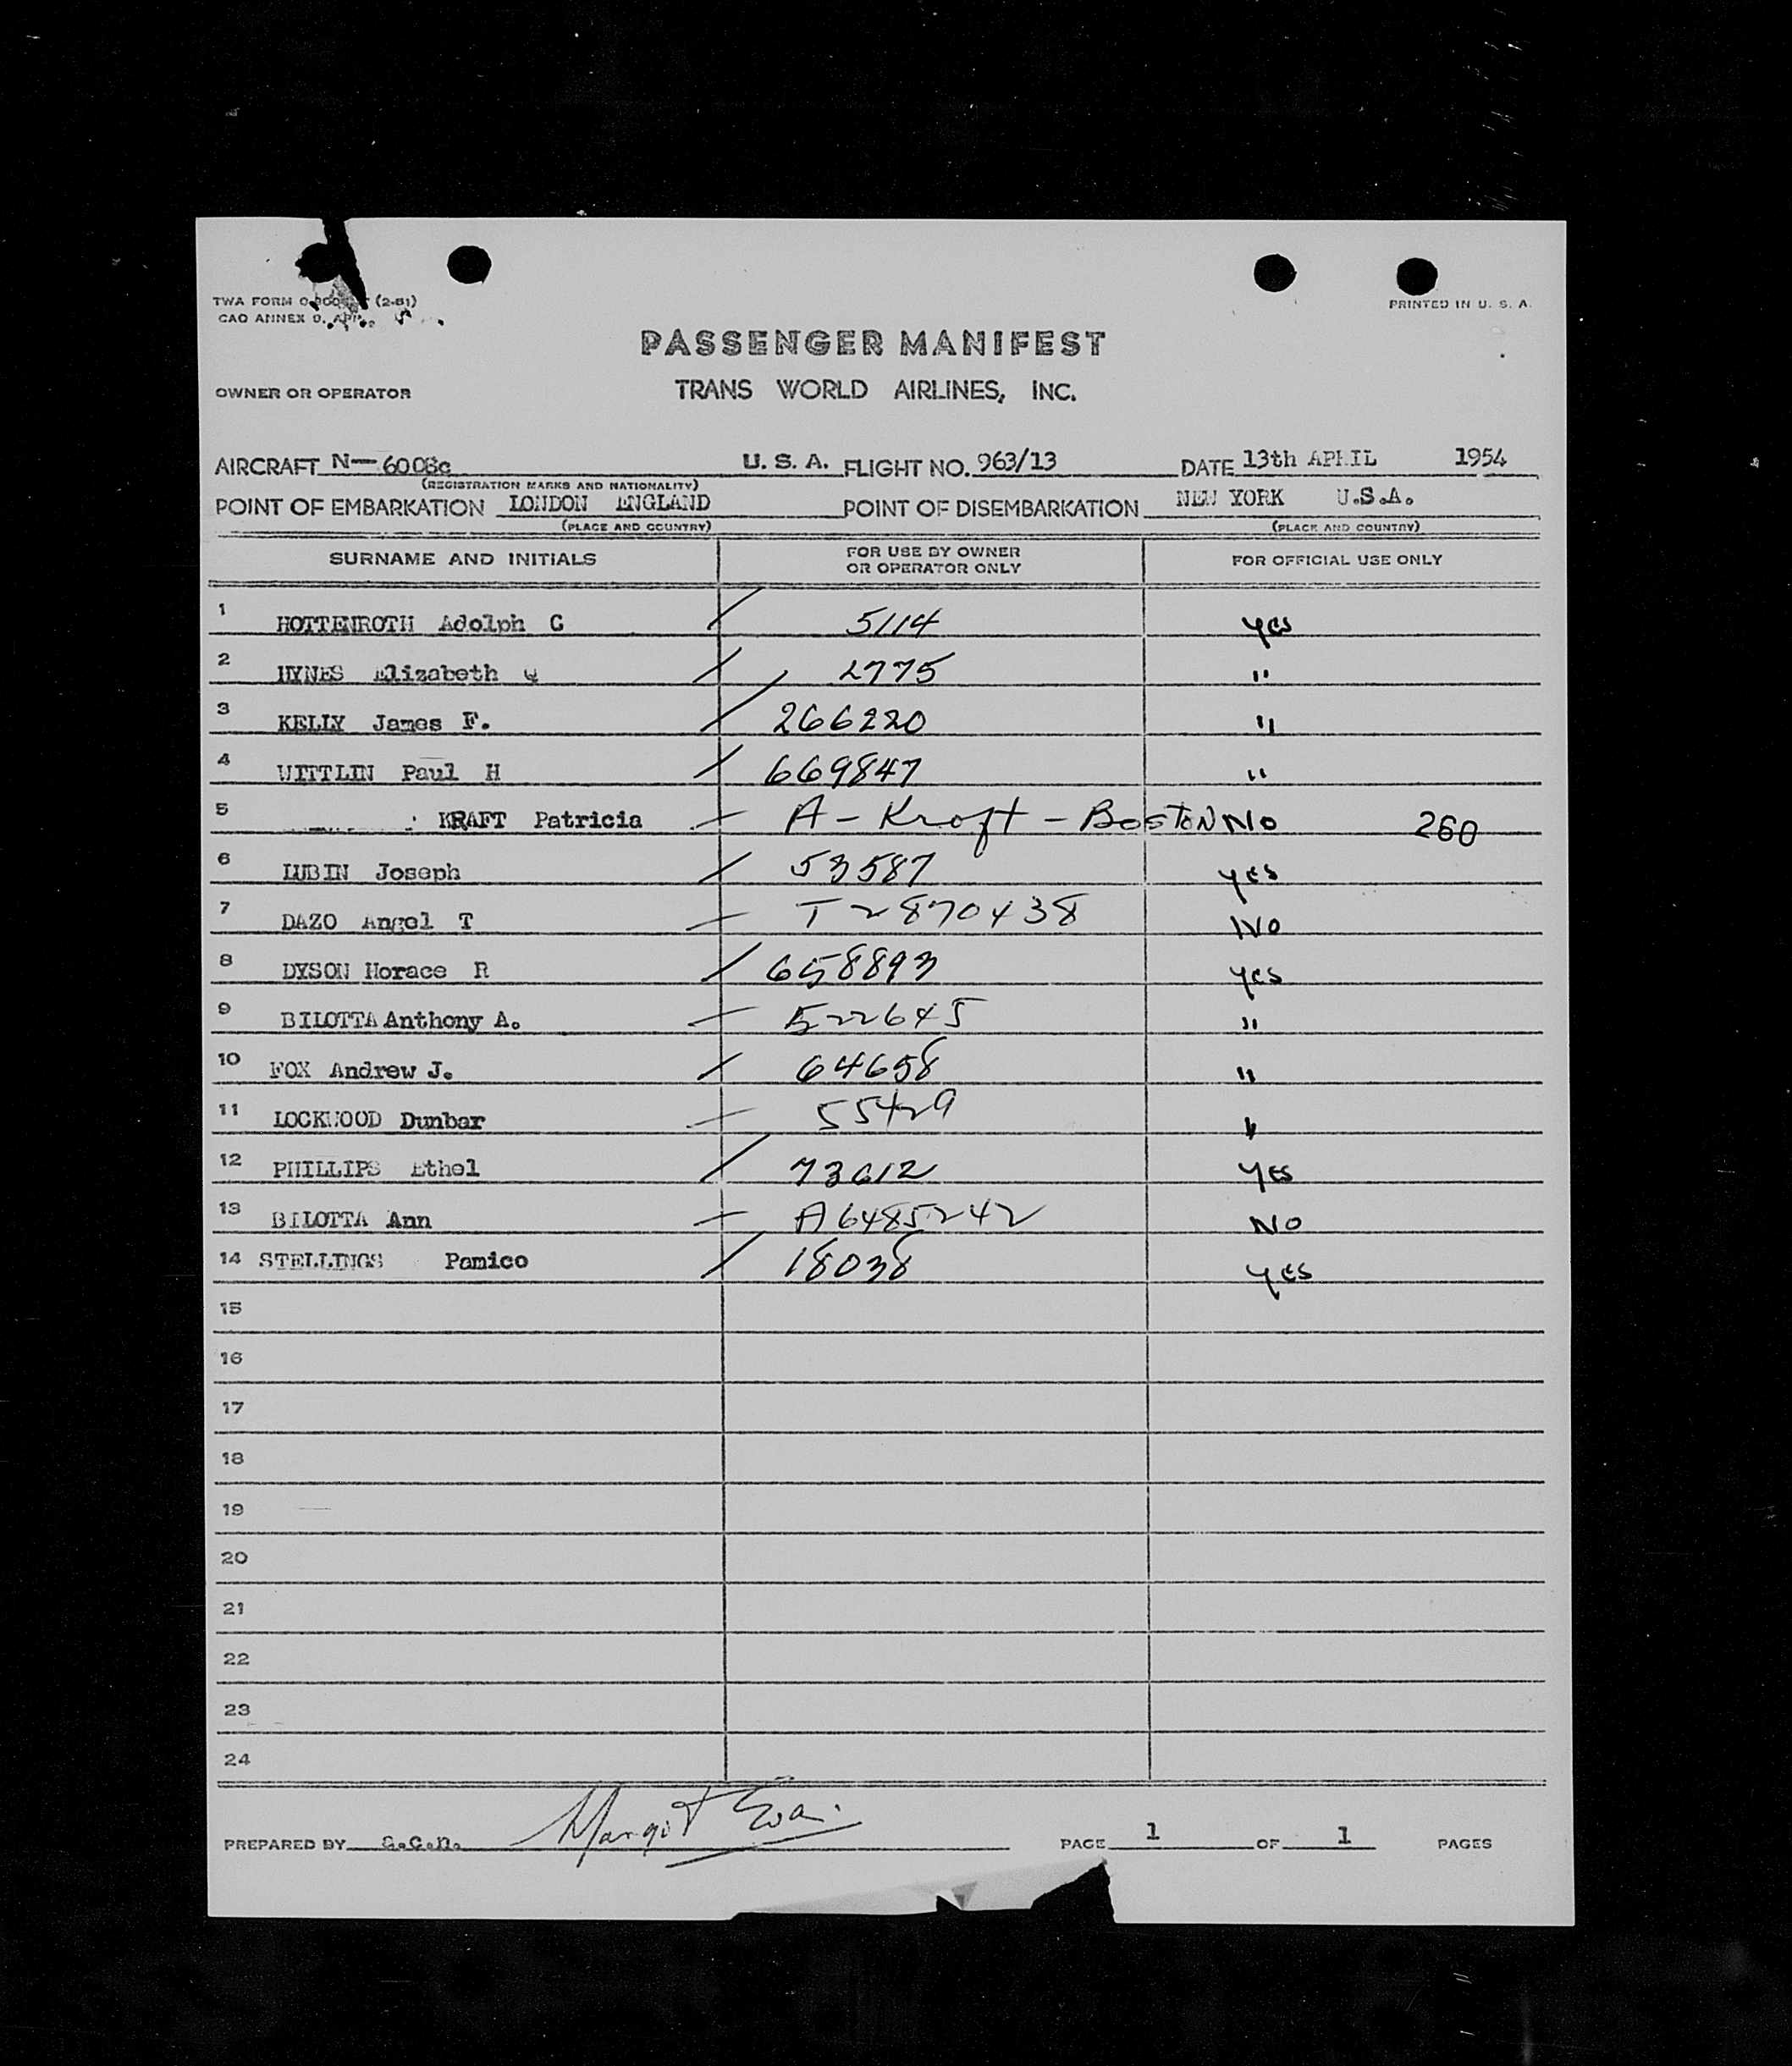 TWA FORM (2-51)
CAO ANNEX 9, APP.
PRINTED IN U. S. A.
PASSENGER MANIFEST
OWNER OR OPERATOR TRANS WORLD AIRLINES, INC.
AIRCRAFT N—6008c U. S. A. FLIGHT NO. 963/13 DATE 13th APRIL 1954
(REGISTRATION MARKS AND NATIONALITY)
POINT OF EMBARKATION LONDON ENGLAND POINT OF DISEMBARKATION NEW YORK U.S.A.
(PLACE AND COUNTRY) (PLACE AND COUNTRY)
SURNAME AND INITIALS FOR USE BY OWNER OR OPERATOR ONLY FOR OFFICIAL USE ONLY
1 HOTTENROTH Adolph C / 5114 yes
2 HYNES Elizabeth / 2775 "
3 KELLY James F. / 266220 "
4 WITTLIN Paul H / 669847 "
5 KRAFT Patricia — A - Kraft - BOSTON No 260
6 LUBIN Joseph / 53587 yes
7 DAZO Angel T — T2870438 No
8 DYSON Horace R / 658893 yes
9 BILOTTA Anthony A. — 522645 "
10 FOX Andrew J. / 64658 "
11 LOCKWOOD Dunbar — 55429 "
12 PHILLIPS Ethel / 73612 YES
13 BILOTTA Ann — A6485242 NO
14 STELLINGS Pamico / 18038 YES
15
16
17
18
19
20
21
22
23
24
PREPARED BY s.c.n. Margit PAGE 1 OF 1 PAGES